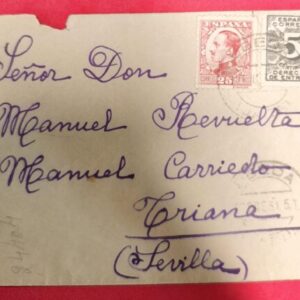 ESPAÑA
25
CTS
ESPAÑA
CORREOS
5
DERECHO
DE ENTRE
Señor Don
Manuel Revuelta
Manuel Carriedo
Triana
(Sevilla)